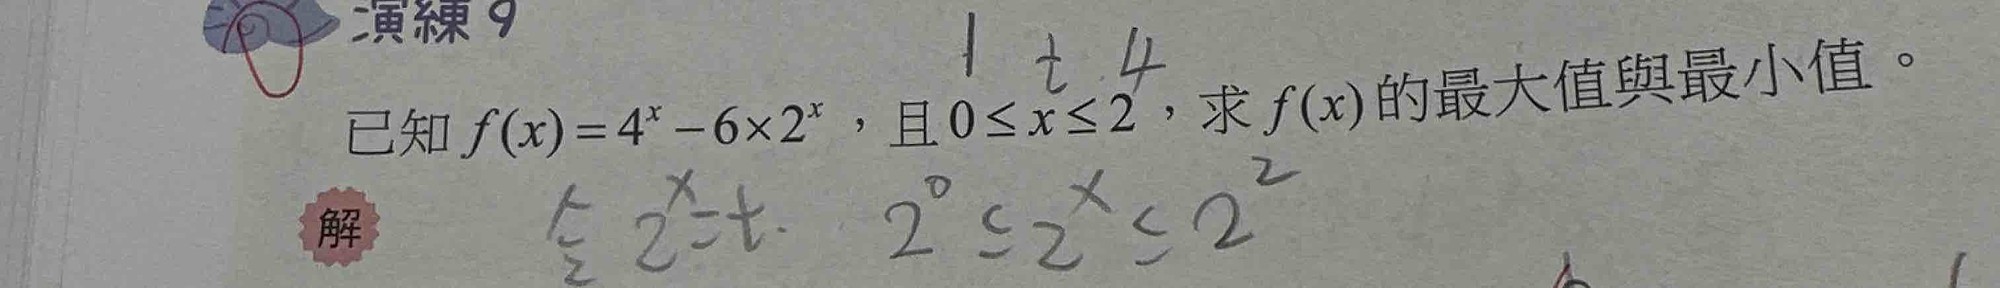 演練 9
1 t 4
已知 f(x) = 4ˣ − 6×2ˣ ，且 0 ≤ x ≤ 2，求 f(x) 的最大值與最小值。
解 令 2ˣ = t. 2⁰ ≤ 2ˣ ≤ 2²